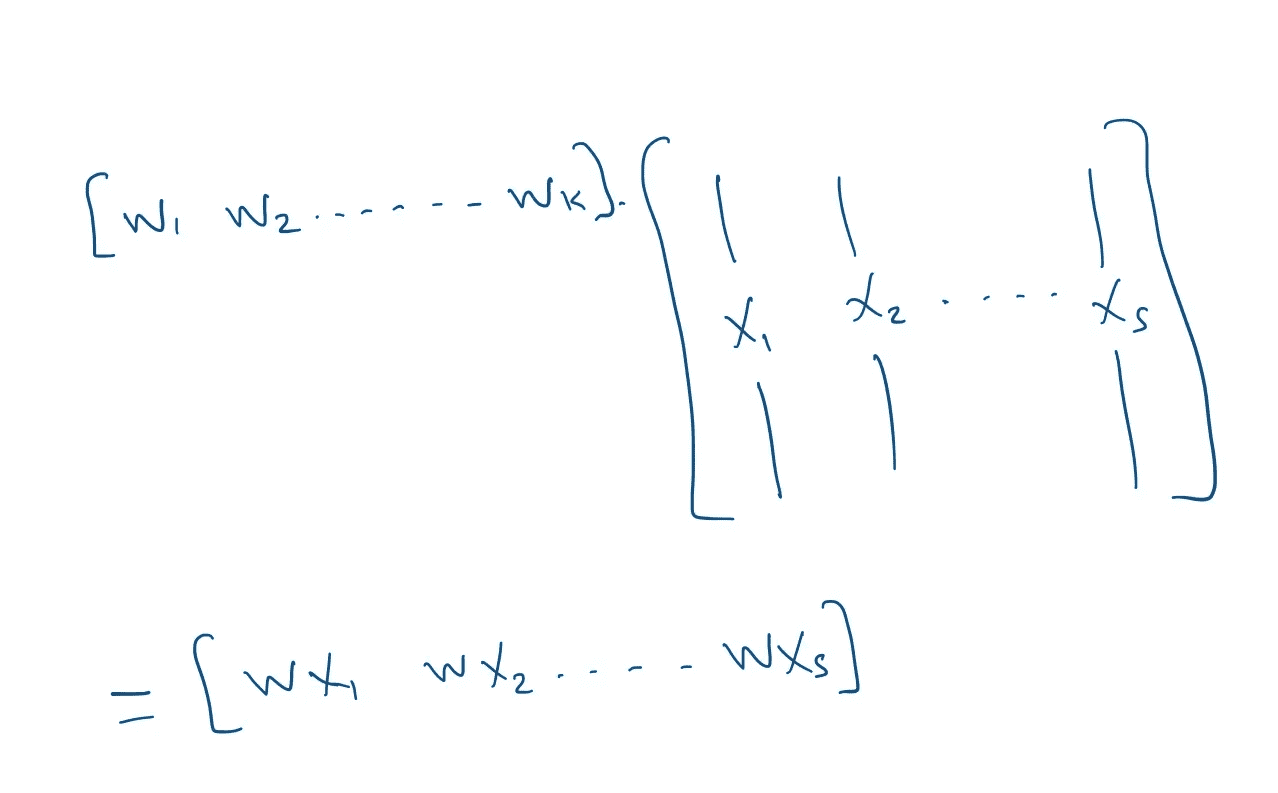 [w1 w2 ........ wK] . [x1 x2 ..... xs]
= [wx1 wx2 ..... wxs]